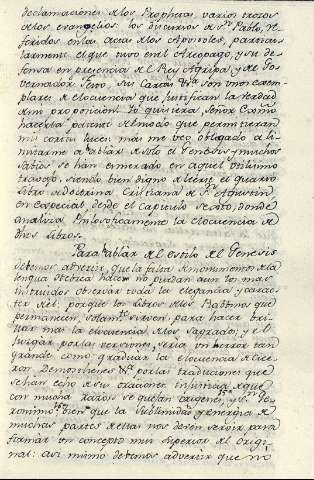 declamaciones de los Prophetas, varios trozos
de los evangelios, los discursos de Sn. Pablo, re
feridos en las actas de los Apostoles, particu
larmente el que tuvo en el Areopago, y su de
fensa en presencia del Rey Agripa, y del Go
vernador Festo, sus Cartas &a. son unos exem
plares de elocuencia que justifican la verdad
de mi proposicion. Yo quisiera, Señor Exmo.
hacerlas patentes del modo que permitieran
mis cortas luces: mas me veo obligado a li
mitarme a hablar de solo el Genesis y muchos
sabios se han esmerado, en aquel utilisimo
travajo, siendo bien digno de leerse el quarto
libro de doctrina Cristiana de Sn. Agustin,
en especial desde el capitulo sexto, donde
analiza filosoficamente la elocuencia de
dhos libros.
Para hablar del estilo del Genesis
devemos advertir, que la falta de monumentos de la
lengua Hebrea hace no puedan aun los mas
instruidos observar toda la elegancia y carac
ter de el: porque los libros de los Rabinos que
permanecen, solamte. sirven para hacer bri
llar mas la elocuencia de los Sagrados; y el
juzgar por las versiones, seria un herror tan
grande como graduar la elocuencia de Cice
ron Demosthenes &a. por las traduciones que
se han echo de sus oraciones infinitas, de que
con mucha razon se quejan Origenes, y Sn. Ge
ronimo, bien que la sublimidad y energia de
muchas partes de estas nos deven servir para
formar un concepto mui superior del origi
nal: asi mismo devemos advertir que no